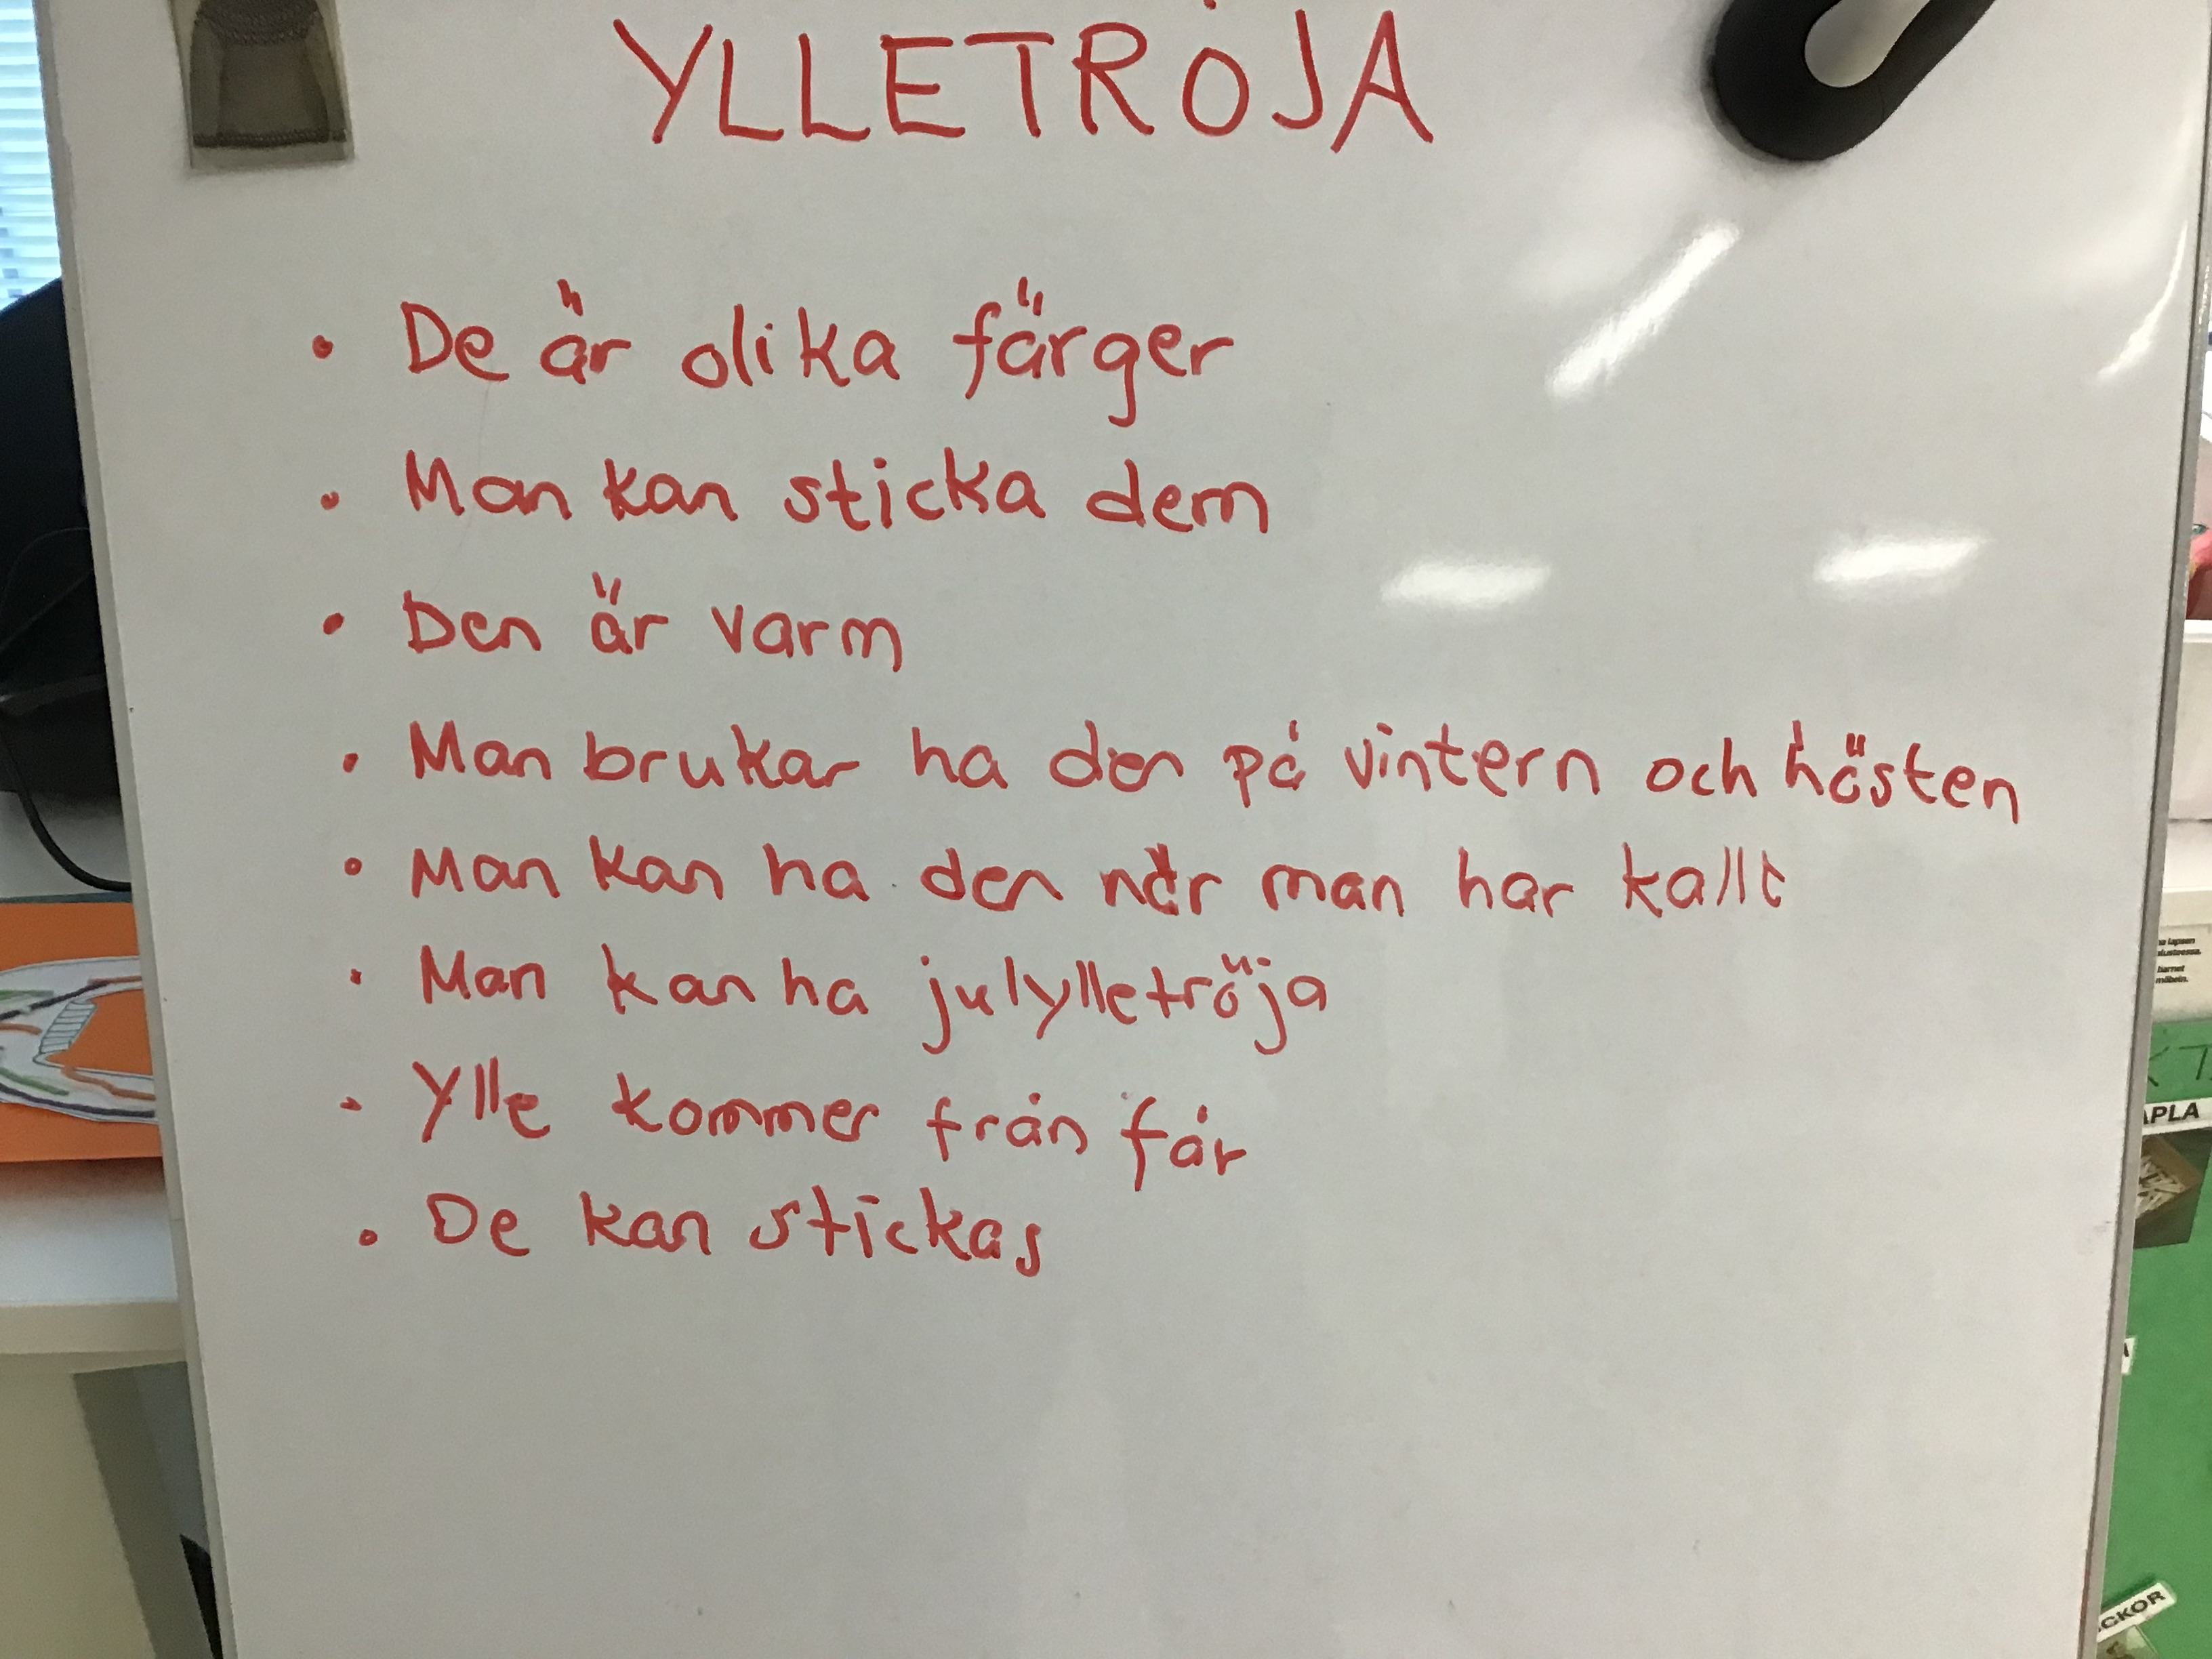 YLLETRÖJA
• De är olika färger
• Man kan sticka dem
• Den är varm
• Man brukar ha den på vintern och hösten
• Man kan ha den när man har kallt
• Man kan ha julylletröja
• Ylle kommer från får
• De kan stickas
barnet
APLA
CKOR